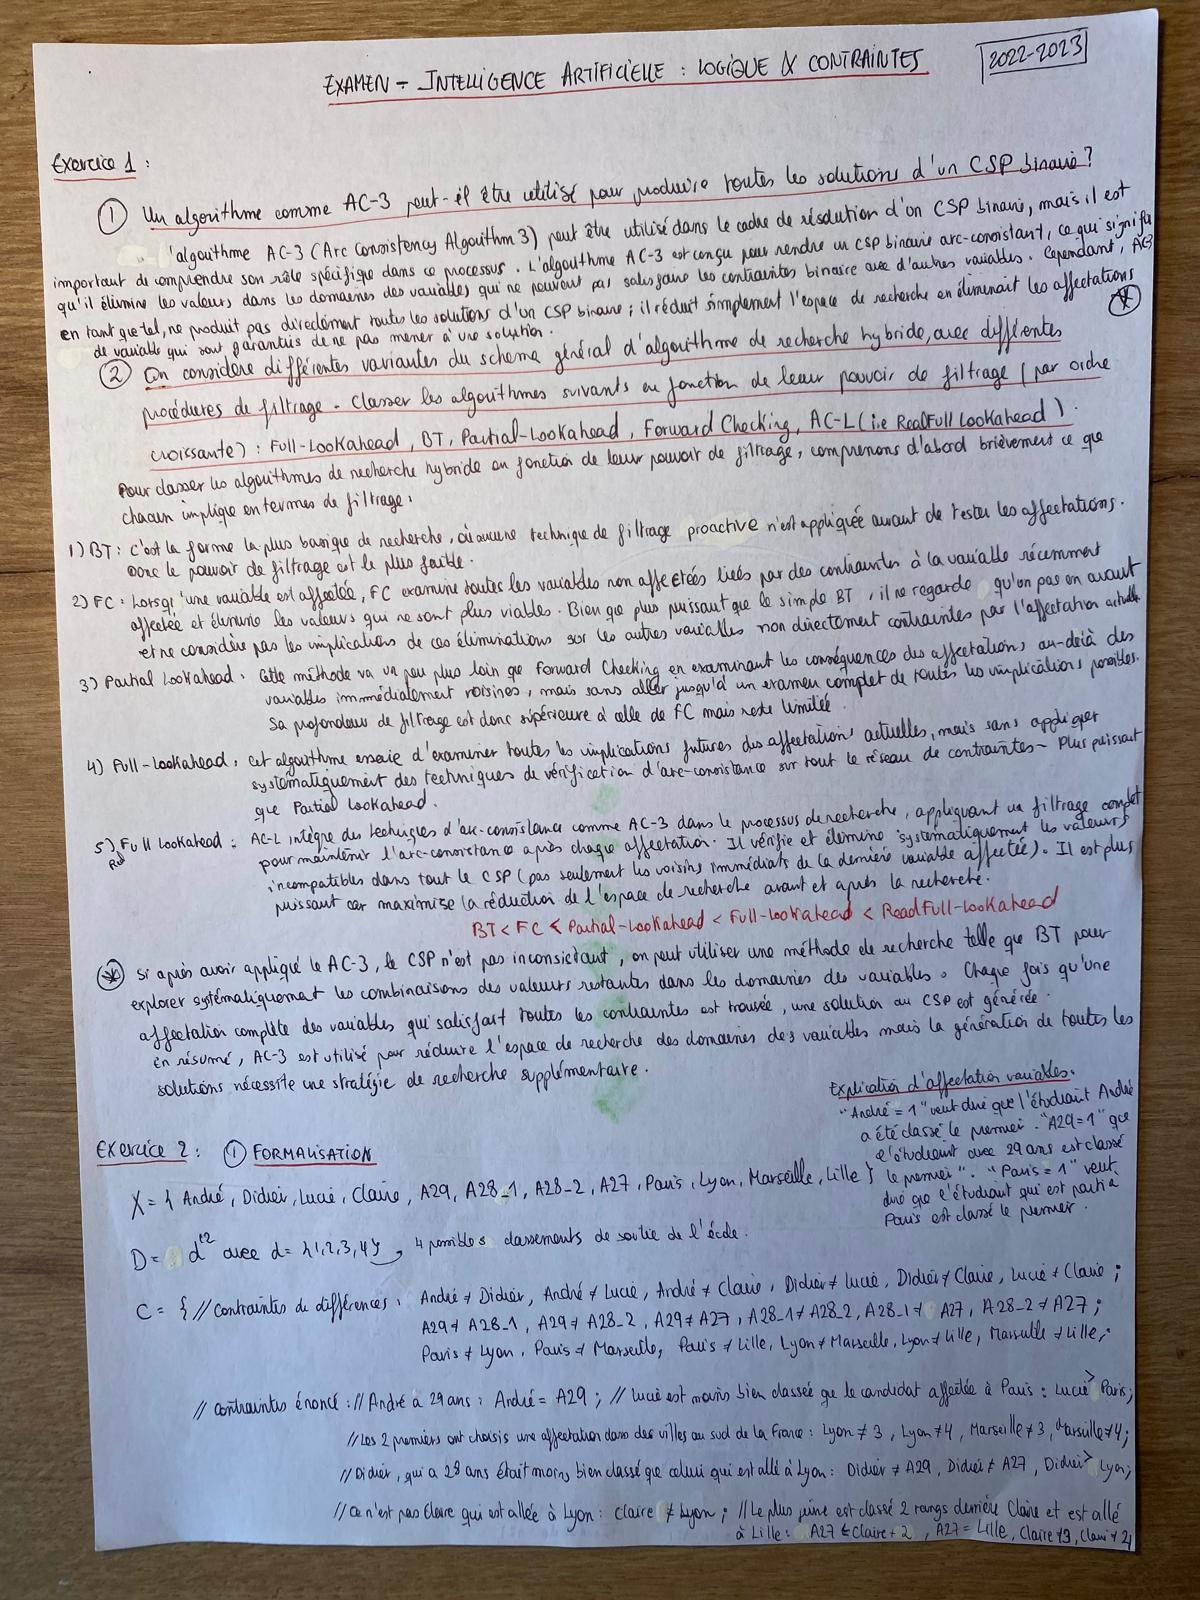 EXAMEN - INTELLIGENCE ARTIFICIELLE : LOGIQUE & CONTRAINTES
2022-2023
Exercice 1 :
① Un algorithme comme AC-3 peut-il être utilisé pour produire toutes les solutions d'un CSP binaire ?
l'algorithme AC-3 (Arc Consistency Algorithm 3) peut être utilisé dans le cadre de résolution d'un CSP binaire, mais il est
important de comprendre son rôle spécifique dans ce processus. L'algorithme AC-3 est conçu pour rendre un CSP binaire arc-consistant, ce qui signifie
qu'il élimine les valeurs dans les domaines des variables qui ne peuvent pas satisfaire les contraintes binaire avec d'autres variables. Cependant, AC3
en tant que tel, ne produit pas directement toutes les solutions d'un CSP binaire ; il réduit simplement l'espace de recherche en éliminant les affectations
de variable qui sont garanties de ne pas mener à une solution.
② On considère différentes variantes du schema général d'algorithme de recherche hybride, avec différentes
procédures de filtrage. Classer les algorithmes suivants en fonction de leur pouvoir de filtrage (par ordre
croissante) : Full-Lookahead, BT, Partial-Lookahead, Forward Checking, AC-L (i.e RealFull Lookahead).
Pour classer les algorithmes de recherche hybride en fonction de leur pouvoir de filtrage, comprenons d'abord brièvement ce que
chacun implique en termes de filtrage :
1) BT : c'est la forme la plus basique de recherche, où aucune technique de filtrage proactive n'est appliquée avant de tester les affectations.
Donc le pouvoir de filtrage est le plus faible.
2) FC : Lorsqu'une variable est affectée, FC examine toutes les variables non affectées liées par des contraintes à la variable récemment
affectée et élimine les valeurs qui ne sont plus viables. Bien que plus puissant que le simple BT, il ne regarde qu'on pas en avant
et ne considère pas les implications de ces éliminations sur les autres variables non directement contraintes par l'affectation actuelle
3) Partial Lookahead : Cette méthode va un peu plus loin que Forward Checking en examinant les conséquences des affectations au-delà des
variables immédiatement voisines, mais sans aller jusqu'à un examen complet de toutes les implications possibles.
Sa profondeur de filtrage est donc supérieure à celle de FC mais reste limitée.
4) Full-Lookahead : cet algorithme essaie d'examiner toutes les implications futures des affectations actuelles, mais sans appliquer
systématiquement des techniques de vérification d'arc-consistance sur tout le réseau de contraintes - Plus puissant
que Partial Lookahead.
5) Real Full Lookahead : AC-L intègre des techniques d'arc-consistance comme AC-3 dans le processus de recherche, appliquant un filtrage complet
pour maintenir l'arc-consistance après chaque affectation. Il vérifie et élimine systématiquement les valeurs
incompatibles dans tout le CSP (pas seulement les voisins immédiats de la dernière variable affectée). Il est plus
puissant car maximise la réduction de l'espace de recherche avant et après la recherche.
BT < FC < Partial-Lookahead < Full-Lookahead < ReadFull-Lookahead
Si après avoir appliqué le AC-3, le CSP n'est pas inconsistant, on peut utiliser une méthode de recherche telle que BT pour
explorer systématiquement les combinaisons des valeurs restantes dans les domaines des variables. Chaque fois qu'une
affectation complète des variables qui satisfait toutes les contraintes est trouvée, une solution au CSP est générée.
en résumé, AC-3 est utilisé pour réduire l'espace de recherche des domaines des variables mais la génération de toutes les
solutions nécessite une stratégie de recherche supplémentaire.
Explication d'affectation variables.
"André = 1" veut dire que l'étudiant André
a été classé le premier. "A29=1" que
l'étudiant avec 29 ans est classé
le premier". "Paris = 1" veut
dire que l'étudiant qui est parti à
Paris est classé le premier.
Exercice 2 : ① FORMALISATION
X = { André, Didier, Lucie, Claire, A29, A28_1, A28_2, A27, Paris, Lyon, Marseille, Lille }
D = d^12 avec d = {1,2,3,4}, 4 possibles classements de sortie de l'école.
C = { // Contraintes de différences : André ≠ Didier, André ≠ Lucie, André ≠ Claire, Didier ≠ Lucie, Didier ≠ Claire, Lucie ≠ Claire ;
A29 ≠ A28_1, A29 ≠ A28_2, A29 ≠ A27, A28_1 ≠ A28_2, A28_1 ≠ A27, A28_2 ≠ A27 ;
Paris ≠ Lyon, Paris ≠ Marseille, Paris ≠ Lille, Lyon ≠ Marseille, Lyon ≠ Lille, Marseille ≠ Lille ;
// contraintes énoncé : // André a 29 ans : André = A29 ; // Lucie est moins bien classée que le candidat affectée à Paris : Lucie > Paris ;
// Les 2 premiers ont choisis une affectation dans des villes au sud de la France : Lyon ≠ 3, Lyon ≠ 4, Marseille ≠ 3, Marseille ≠ 4 ;
// Didier, qui a 28 ans était moins bien classé que celui qui est allé à Lyon : Didier ≠ A29, Didier ≠ A27, Didier > Lyon ;
// Ce n'est pas Claire qui est allée à Lyon : Claire ≠ Lyon ; // Le plus jeune est classé 2 rangs derrière Claire et est allé
à Lille : A27 = Claire + 2, A27 = Lille, Claire ≠ 3, Claire ≠ 4